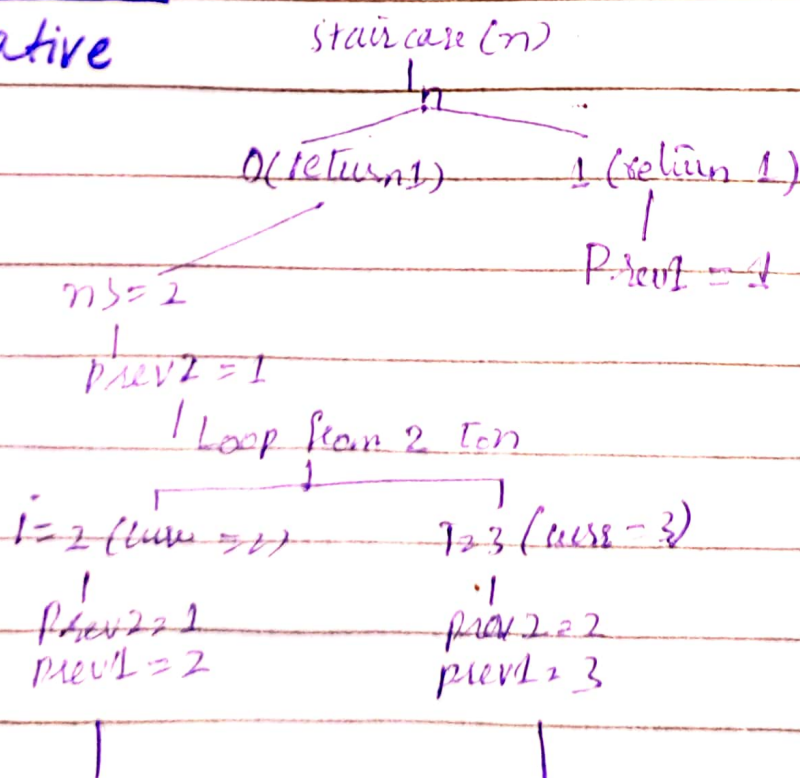 ative
staircase(n)
n
0(return1) 1 (return 1)
Prev1 = 1
n>=2
prev2 = 1
Loop from 2 to n
i=2 (curr = 2) i=3 (curr = 3)
Prev2 = 1 prev2 = 2
prev1 = 2 prev1 = 3